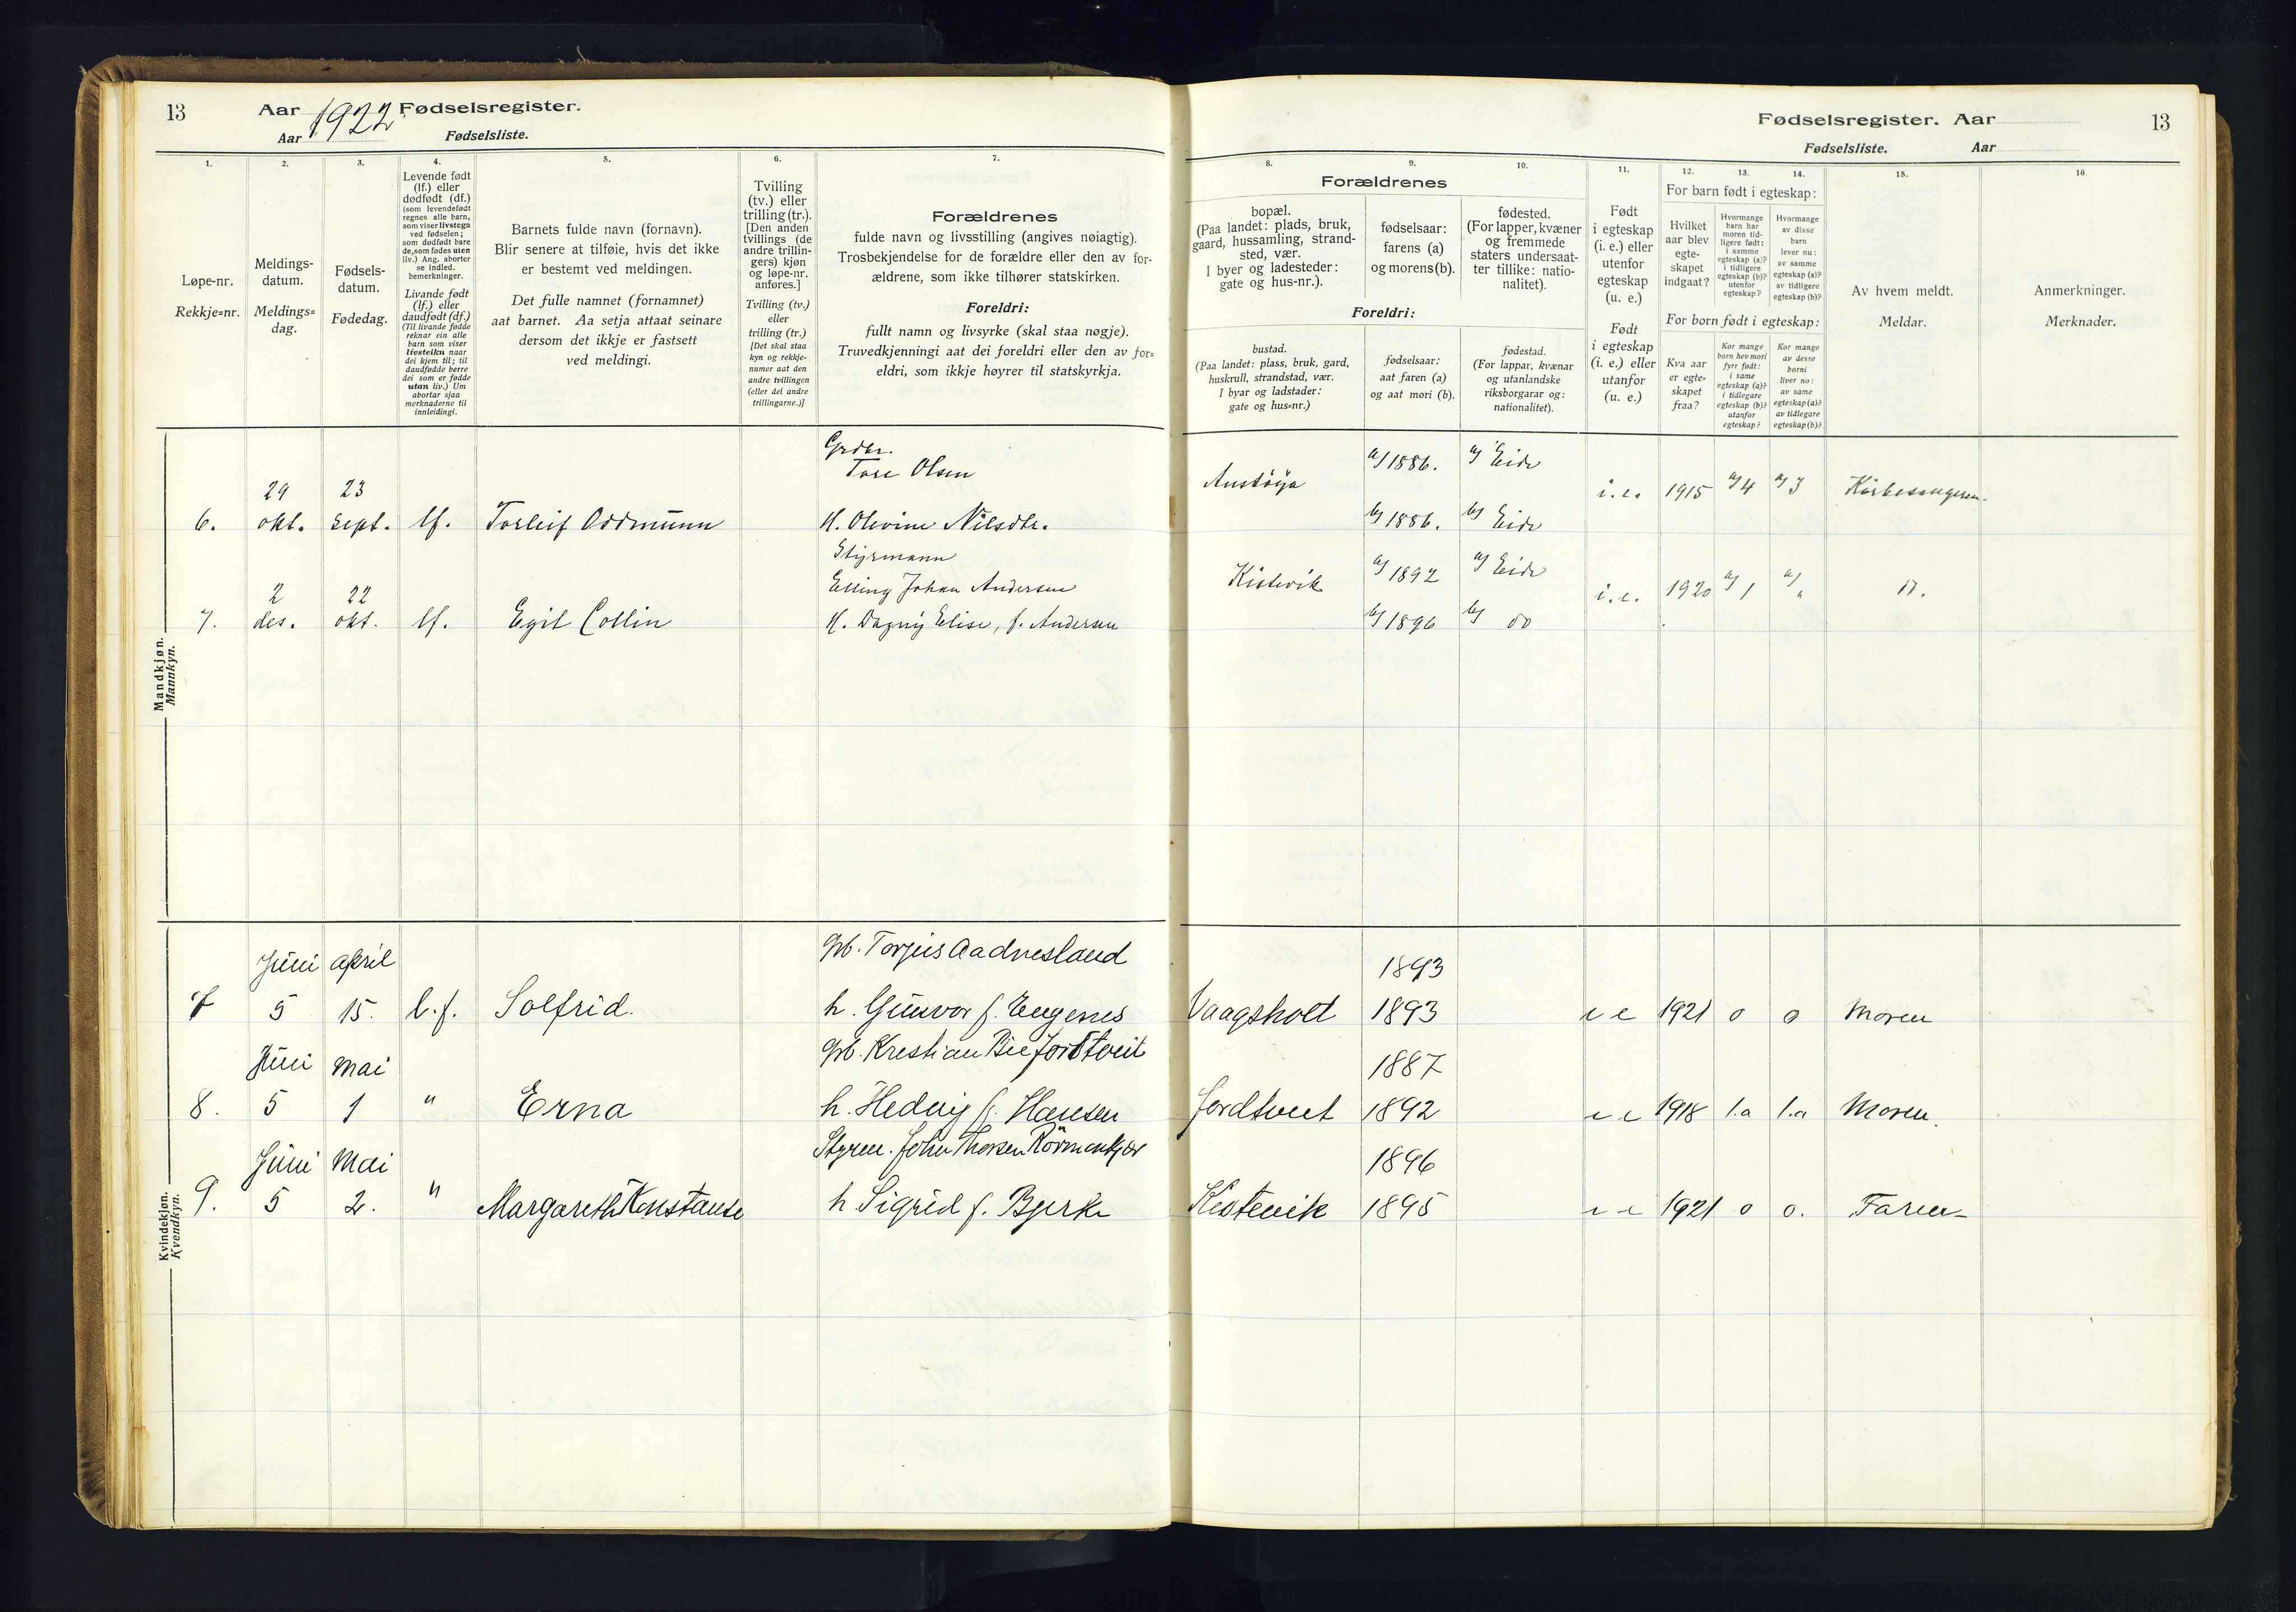 13
Aar 1922 Fødselsregister.
Aar Fødselsliste.
Fødselsregister. Aar
13
Fødselsliste. Aar
1.
Løpe-nr.
Rekkje=nr.
2.
Meldings-
datum.
Meldings=
dag.
3.
Fødsels-
datum.
Fødedag.
4.
Levende født
(lf.) eller
dødfødt (df.)
(som levendefødt
regnes alle barn,
som viser livstegn
ved fødselen;
som dødfødt bare
de, som fødes uten
liv.) Ang. aborter
se indled.
bemerkninger.
Livande født
(lf.) eller
daudfødt (df.)
(Til livande fødde
reknar ein alle
barn som viser
livsteikn naar
dei kjem til; til
daudfødde berre
dei som er fødde
utan liv.) Um
abortar sjaa
merknaderne til
innleidingi.
5.
Barnets fulde navn (fornavn).
Blir senere at tilføie, hvis det ikke
er bestemt ved meldingen.
Det fulle namnet (fornamnet)
aat barnet. Aa setja attaat seinare
dersom det ikkje er fastsett
ved meldingi.
6.
Tvilling
(tv.) eller
trilling (tr.).
[Den anden
tvillings (de
andre trillin-
gers) kjøn
og løpe-nr.
anføres.]
Tvilling (tv.)
eller
trilling (tr.)
[Det skal staa
kyn og rekkje-
numer aat den
andre tvillingen
(eller dei andre
trillingarne.)]
7.
Forældrenes
fulde navn og livsstilling (angives nøiagtig).
Trosbekjendelse for de forældre eller den av for-
ældrene, som ikke tilhører statskirken.
Foreldri:
fullt namn og livsyrke (skal staa nøgje).
Truvedkjenningi aat dei foreldri eller den av for=
eldri, som ikkje høyrer til statskyrkja.
8.
9.
10.
Forældrenes
bopæl.
(Paa landet: plads, bruk,
gaard, hussamling, strand-
sted, vær.
I byer og ladesteder:
gate og hus-nr.).
fødselsaar:
farens (a)
og morens (b).
fødested.
(For lapper, kvæner
og fremmede
staters undersaat-
ter tillike: natio-
nalitet).
Foreldri:
bustad.
(Paa landet: plass, bruk, gard,
huskrull, strandstad, vær.
I byar og ladstader:
gate og hus=nr.)
fødselsaar:
aat faren (a)
og aat mori (b).
fødestad.
(For lappar, kvænar
og utanlandske
riksborgarar og:
nationalitet).
11.
Født
i egteskap
(i. e.) eller
utenfor
egteskap
(u. e.)
Født
i egteskap
(i. e.) eller
utanfor
(u. e.)
12.
13.
14.
For barn født i egteskap:
Hvilket
aar blev
egte-
skapet
indgaat?
Hvormange
barn har
moren tid-
ligere født:
i samme
egteskap (a)?
i tidligere
egteskap (b)?
utenfor
egteskap?
Hvormange
av disse
barn
lever nu:
av samme
egteskap (a)?
av tidligere
egteskap (b)?
For born født i egteskap:
Kva aar
er egte=
skapet
fraa?
Kor mange
born hev mori
fyrr født:
i same
egteskap (a)?
i tidlegare
egteskap (b)?
utanfor
egteskap?
Kor mange
av desse
borni
liver no:
av same
egteskap (a)?
av tidlegare
egteskap (b)?
15.
Av hvem meldt.
Meldar.
16.
Anmerkninger.
Merknader.
Mandkjøn.
Mannkyn.
Grdbr.
Tore Olsen
29 23 a) 1886. a) Eide
Austöya i. e. 1915 a) 4 a) 3 Kirkesangeren.
6. okt. sept. lf. Torleif Oddmunn H. Olevine Nilsdtr. b) 1886. b) Eide
Styrmann
2 22 Elling Johan Andersen Kistevik a) 1892 a) Eide i. e. 1920 a) 1 a) "
7. des. okt. lf. Egil Collin H. Dagny Elise, f. Andersen b) 1896 b) do
Kvindekjøn.
Kvendkyn.
Juni April gbr. Torjus Aadnesland 1893
7 5 15. l.f. Solfrid. h. Gunvor f. Eugenes Vaagsholt 1893 i e 1921 o o Moren
Juni Mai Kristian 1887
8. 5 1 " Erna h. Hedvig f. Hansen Jordtveit 1892 i e 1918 1.a 1.a Moren.
Juni Mai Styrm. John Thorsen 1896
9. 5 2. " Margareth Konstanse h Sigrid f. Bjerke Kistevik 1895 i e 1921 o o. Faren